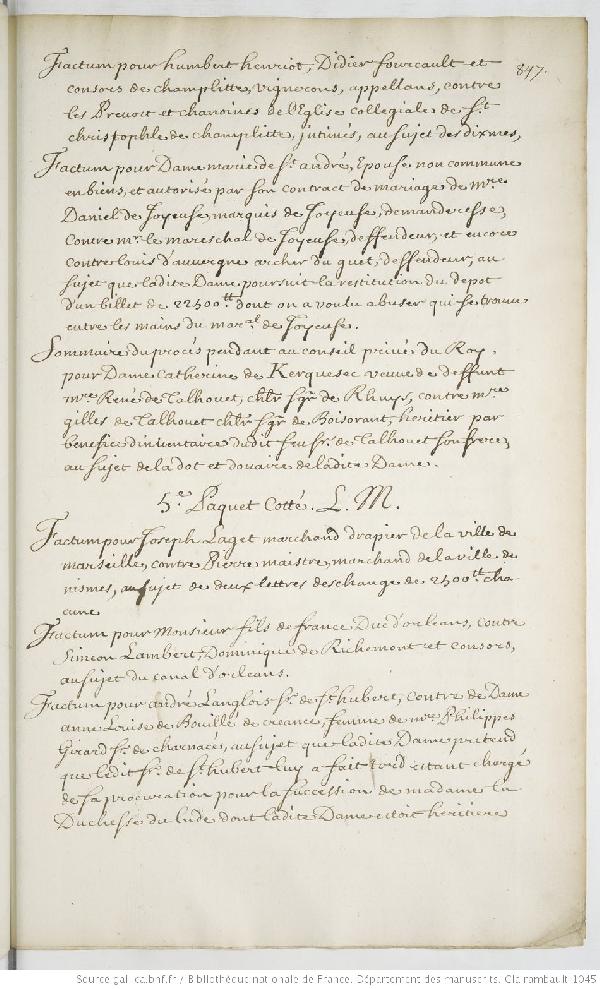 847.
Factum pour humbert henriot, Didier fourcault et
consors de champlitte, vignerons, appellans, contre
les Prevost et chanoines de l'Eglise collegiale de St.
christophle de champlitte, intimés, au sujet des dixmes,
Factum pour Dame marie de St. andré, Epouse non commune
en biens, et autorisé par son contract de mariage de mre.
Daniel de Joyeuse, marquis de Joyeuse, demanderesse,
Contre mr. le mareschal de Joyeuse, deffendeur, et encore
contre louis d'auvergne archer du guet, deffendeur, au
sujet que ladite Dame poursuit la restitution du depot
d'un billet de 22500tt dont on a voulu abuser qui se trouve
entre les mains du maral. de Joyeuse.
Sommaire du procés pendant au conseil privé du Roy,
pour Dame Catherine de Kerquesec veuve de deffunt
mre. René de lalhouet, chlr. sgr. de Rhimps, contre mre.
gilles de lalhouet chlr. sgr. de Boisorant, heritier par
benefice d'inventaire dudit feu sr. de lalhouet son frere,
au sujet de la dot et douaire de ladite Dame.
5.e Paquet Cotté. L. M.
Factum pour Joseph Laget marchand drapier de la ville de
marseille, contre Pierre maistre, marchand de la ville de
nismes, au sujet de deux lettres deschange de 2500tt cha-
cune
Factum pour Monsieur fils de france Duc d'orleans, contre
Simeon Lambert, Dominique de Richemont et consors,
au sujet du canal d'orleans.
Factum pour andré Langlois sr. de St. hubert, contre de Dame
anne Louise de Bouillé de creance, femme de mre Philippes
Girard sr. de charnacés, au sujet que ladite Dame pretend
que ledit sr. de St. hubert luy a fait tord estant chargé
de sa procuration pour la succession de madame la
Duchesse du lude dont ladite Dame etoit heritiere
Source gallica.bnf.fr / Bibliothèque nationale de France. Département des manuscrits. Clairambault 1045